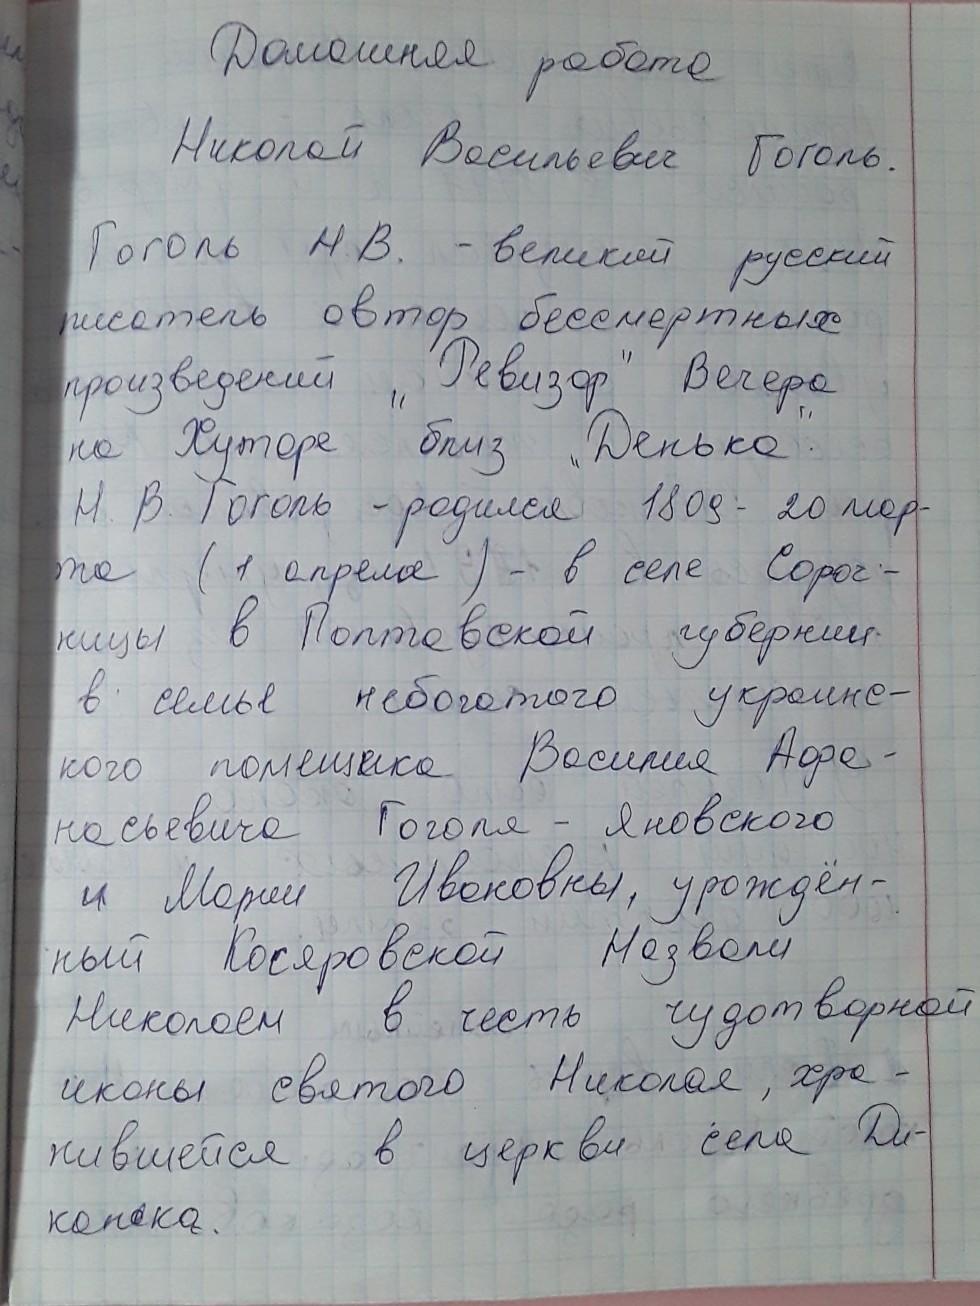 Домашняя работа
Николай Васильевич Гоголь.
Гоголь Н.В. - великий русский
писатель автор бессмертных
произведений „Ревизор" Вечера
на Хуторе близ „Денька".
Н. В. Гоголь - родился 1809 - 20 мар-
та (1 апреля) - в селе Сороч-
ницы в Полтавской губернии
в семье небогатого украинс-
кого помещика Василия Афа-
насьевича Гоголя - Яновского
и Марии Ивановны, урождён-
ный Косяровской Назвали
Николаем в честь чудотворной
иконы святого Николая, хра-
нившейся в церкви села Ди-
канька.